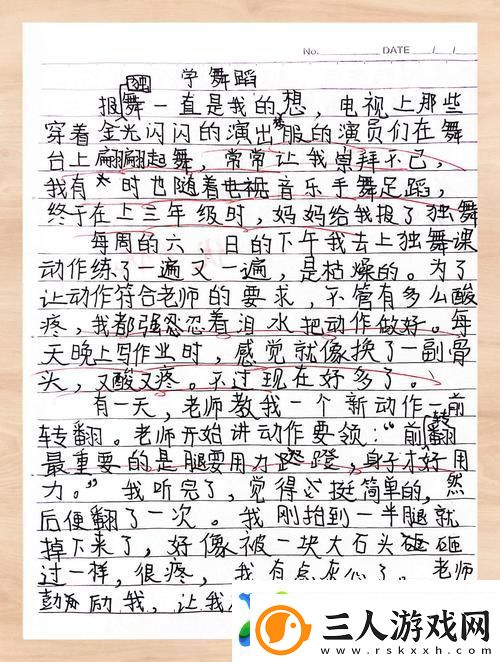 No. DATE / /
学舞蹈
报独舞一直是我的想，电视上那些
穿着金光闪闪的演出服的演员们在舞
台上翩翩起舞，常常让我崇拜不已，
我有时也随着电视音乐手舞足蹈，
终于在上三年级时，妈妈给我报了独舞
每周的六、日的下午我去上独舞课
动作练了一遍又一遍，是枯燥的。为了
让动作符合老师的要求，不管有多么酸
疼，我都强忍忍着泪水把动作做好。每
天晚上写作业时，感觉就像换了一副骨
头，又酸又疼。不过现在好多了。
有一天，老师教我一个新动作一前
转翻。老师开始讲动作要领：“前转翻
最重要的是腿要用力蹬，身子才好用
力。”我听完了，觉得挺简单的，然
后便翻了一次。我刚拍到一半腿就
掉下来了，好像被一块大石头砸砸
过一样，很疼，我有点灰心了。老师
励我，让我
三人游戏网
www.rskxxh.com